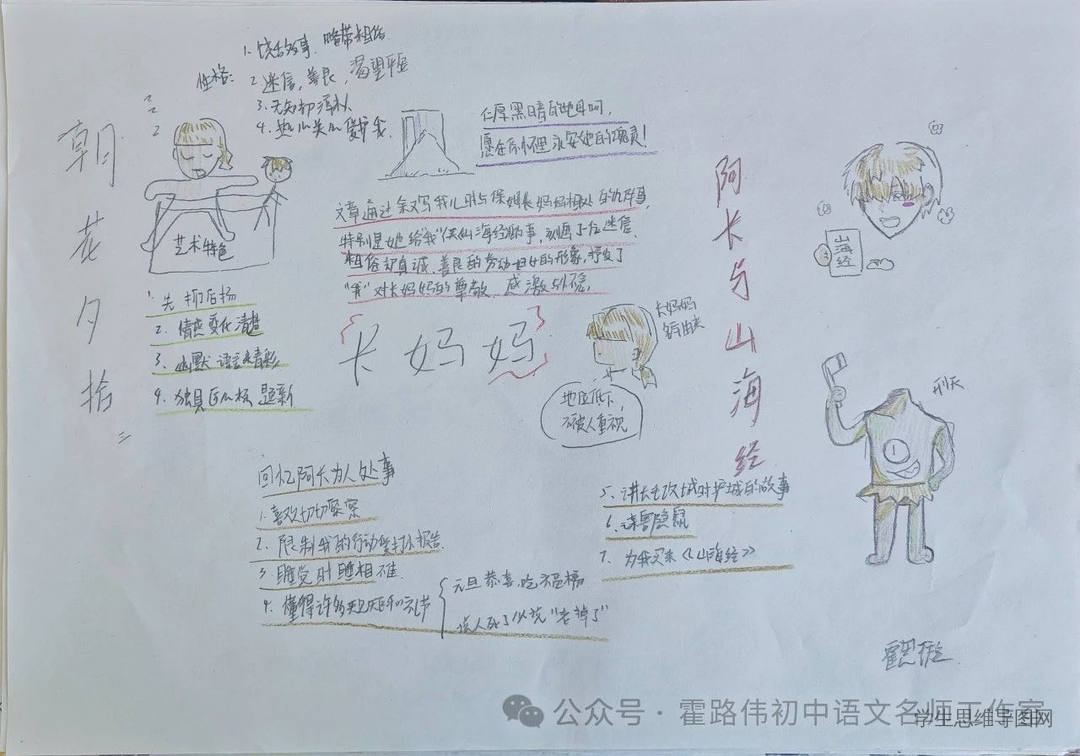 朝花夕拾
性格:
1. 饶舌多事、略带粗俗
2 迷信，善良，渴望平安
3. 无知却淳朴
4. 热心关心爱护我
仁厚黑暗的地母呵，
愿在你怀里永安她的魂灵！
艺术特色
1. 先抑后扬
2. 情感变化清楚
3. 幽默语言精彩
4. 独具匠心
文章通过叙写我儿时与保姆长妈妈相处的几件事，
特别是她给"我"
迷信、
粗俗却真诚、善良的劳动妇女的形象，抒发了
"我"对长妈妈的尊敬、感激
长妈妈
长妈妈
地位低下，
不被人重视
阿长与山海经
山海经
刑天
回忆阿长为人处事
1. 喜欢切切察察
2. 限制我的行动
3 睡觉时睡相不佳
4. 懂得许多规矩和礼节
元旦恭喜，吃福橘
说人死了必说"老掉了"
5. 讲长毛攻城时护城的故事
6. 谋害隐鼠
7. 为我买来《山海经》
公众号·霍路伟初中语文名师工作室
学生思维导图网